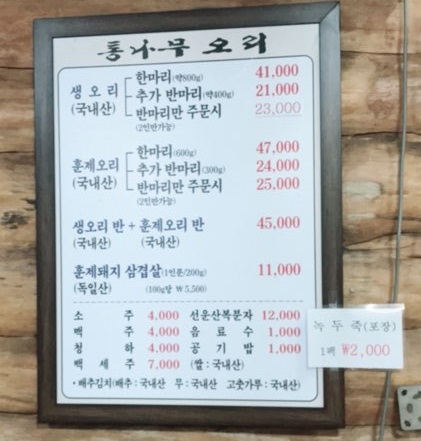 통나무 오리
생오리 한마리(약800g) 41,000
(국내산) 추가 반마리(약400g) 21,000
반마리만 주문시 23,000
(2인만가능)
훈제오리 한마리(600g) 47,000
(국내산) 추가 반마리(300g) 24,000
반마리만 주문시 25,000
(2인만가능)
생오리 반 + 훈제오리 반 45,000
(국내산) (국내산)
훈제돼지 삼겹살(1인분/200g) 11,000
(독일산) (100g당 ₩5,500)
소 주 4,000 선운산복분자 12,000
맥 주 4,000 음 료 수 1,000
청 하 4,000 공 기 밥 1,000
백 세 주 7,000 (쌀 : 국내산)
• 배추김치(배추 : 국내산 무 : 국내산 고춧가루 : 국내산)
녹두죽(포장)
1팩 ₩2,000